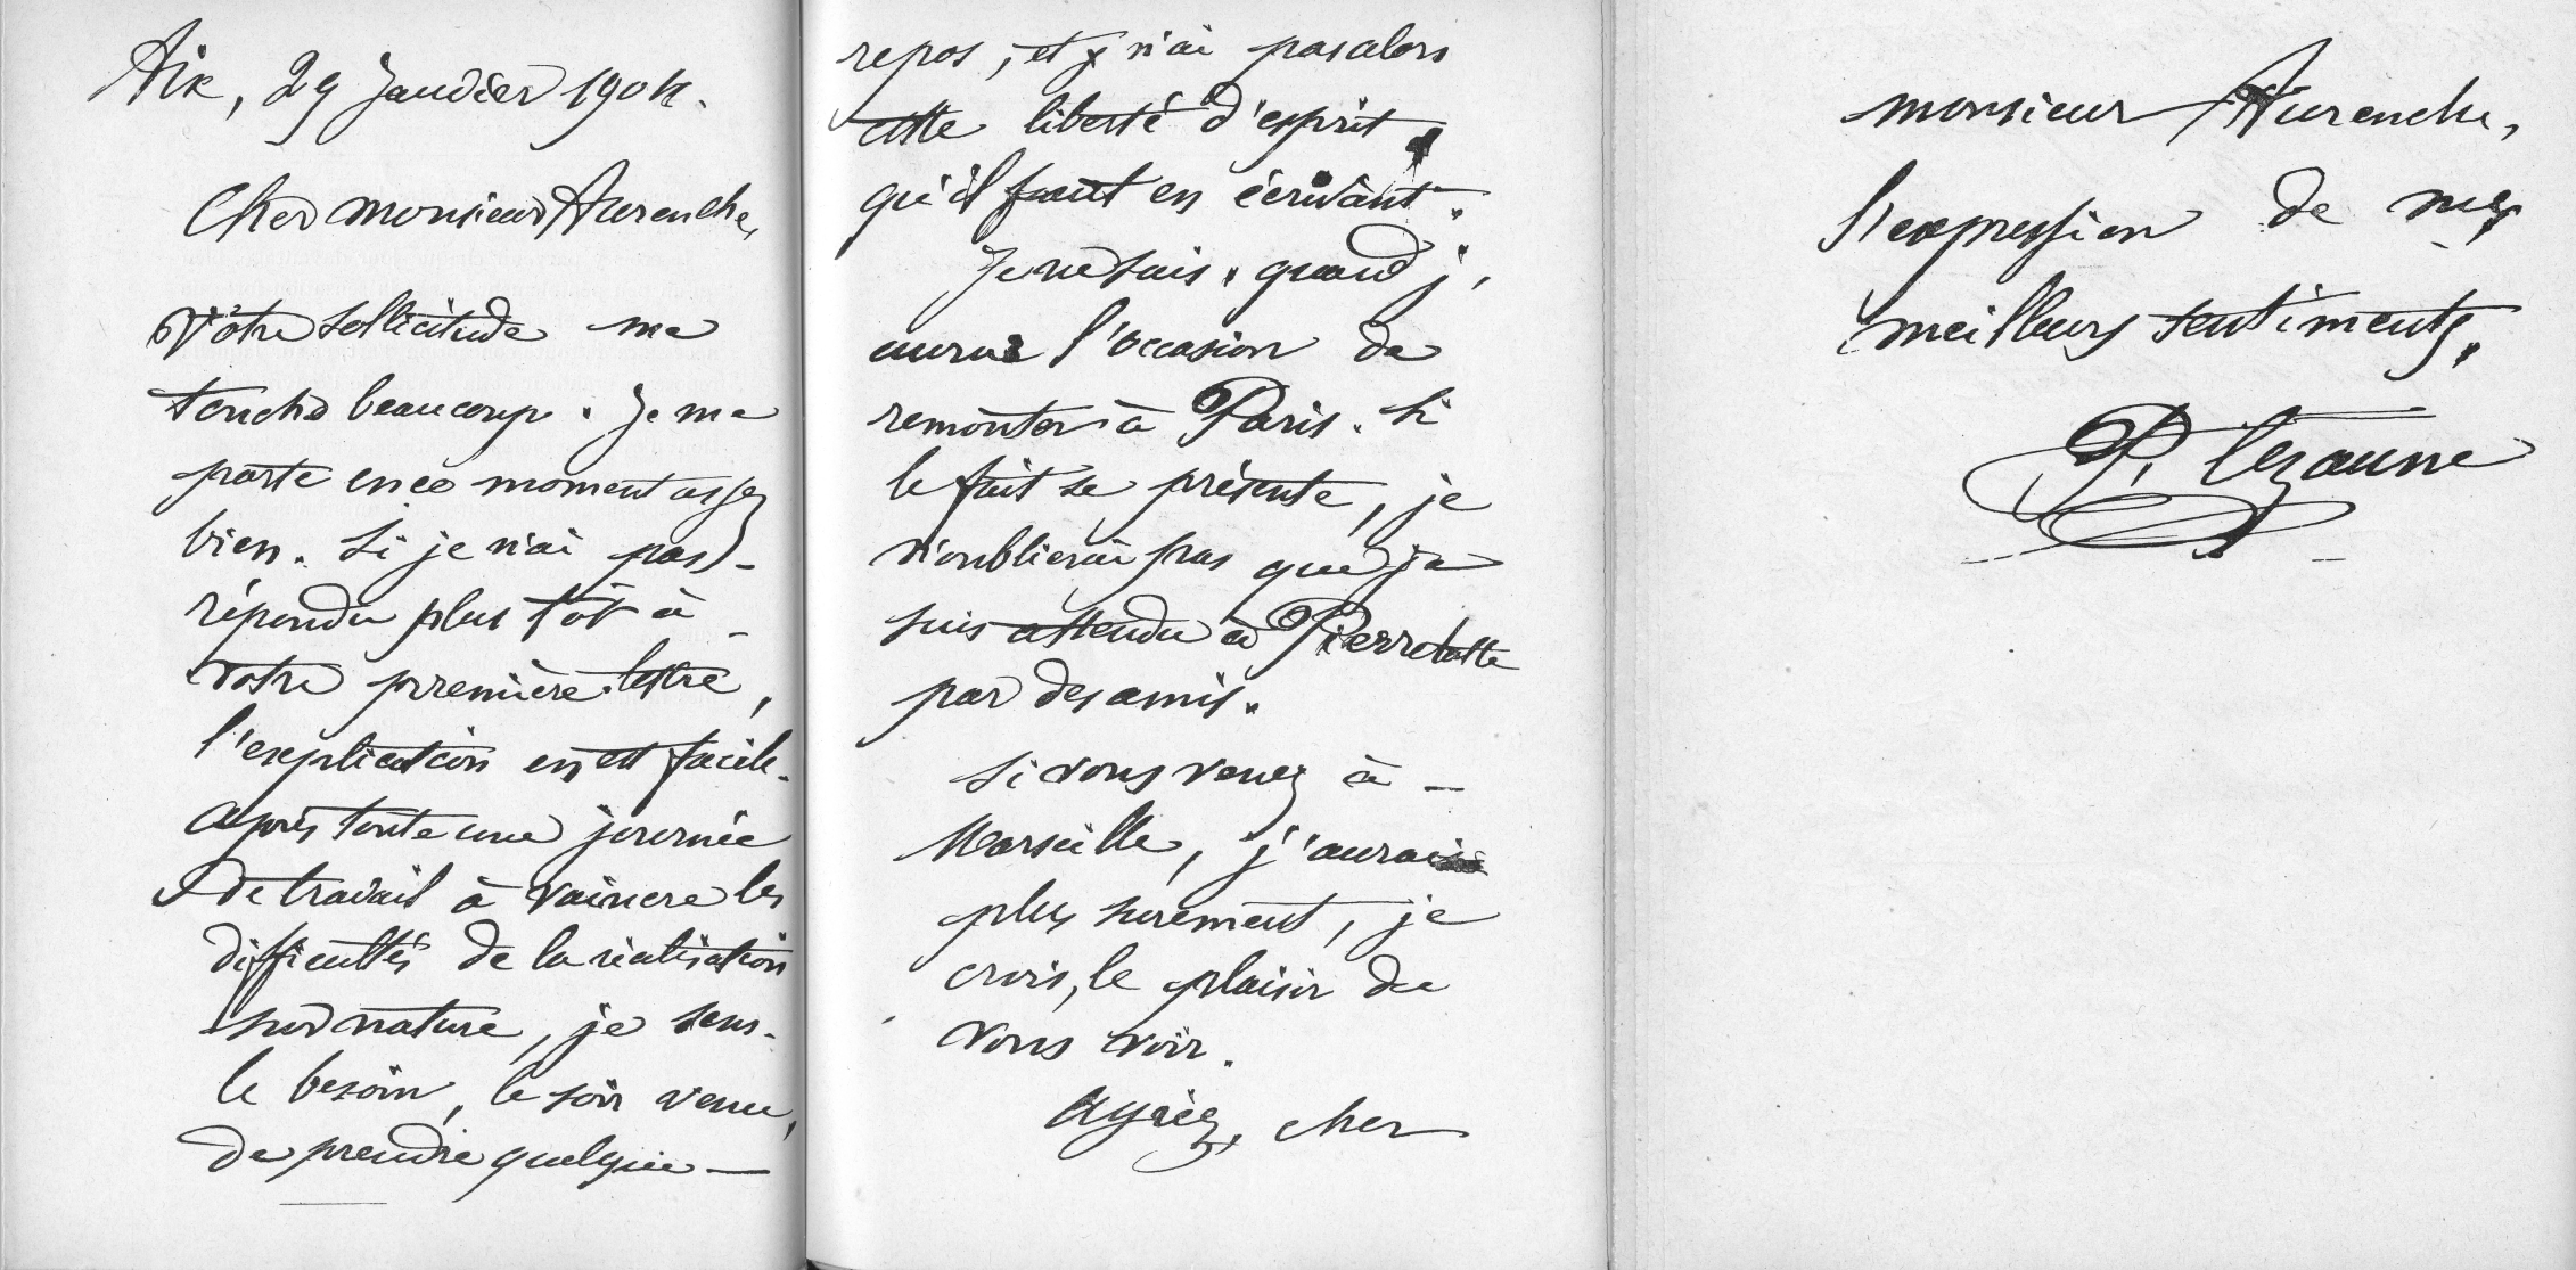 Aix, 29 Janvier 1904.
Cher monsieur Aurenche,
Votre sollicitude me
touche beaucoup. Je me
porte en ce moment assez
bien. Si je n'ai pas
répondu plus tôt à
votre première lettre,
l'explication en est facile.
Après toute une journée
de travail à vaincre les
difficultés de la réalisation
sur nature, je sens
le besoin, le soir venu,
de prendre quelque
repos, et je n'ai pas alors
cette liberté d'esprit
qu'il faut en écrivant.
Je ne sais quand j'
aurai l'occasion de
remonter à Paris. Si
le fait se présente, je
n'oublierai pas que je
suis attendu à Pierrelatte
par des amis.
Si vous venez à
Marseille, j'aurai
plus surement, je
crois, le plaisir de
vous voir.
Agréez, cher
monsieur Aurenche,
l'expression de mes
meilleurs sentiments.
P. Cezanne